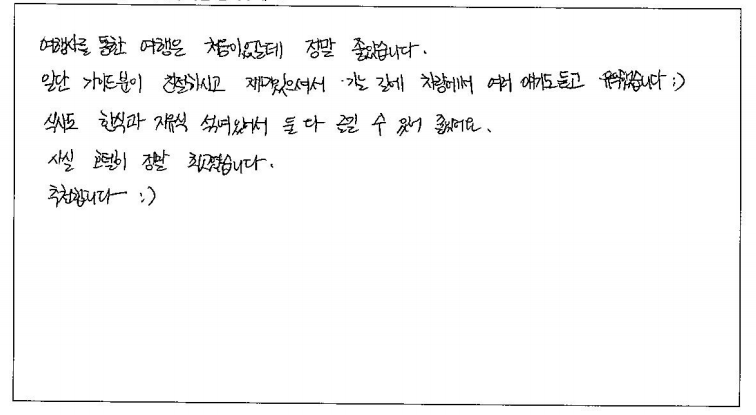 여행사를 통한 여행은 처음이었는데 정말 좋았습니다.
일단 가이드분이 친절하시고 재미있으셔서 가는 길에 차량에서 여러 얘기도 듣고 유익했습니다 :)
식사도 한식과 자유식 섞여있어서 둘 다 즐길 수 있어 좋았어요.
사실 호텔이 정말 최고였습니다.
추천합니다ー :)